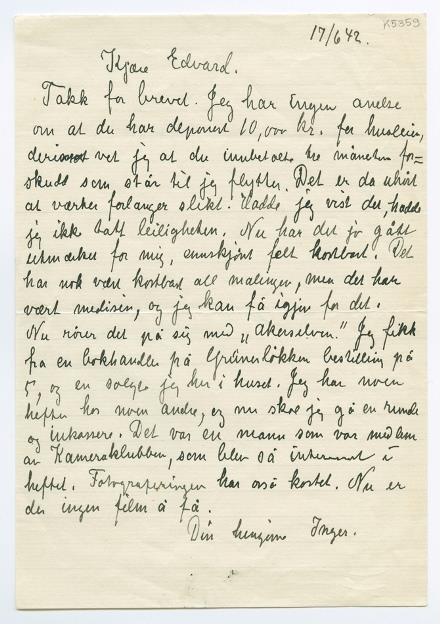 K5359
17/6 42.
Kjære Edvard.
Takk for brevet. Jeg har ingen anelse
om at du har deponert 10,000 kr. for husleien,
derimot vet jeg at du innbetalte tre måneder for=
skudd som står til jeg flytter. Det er da uhørt
at verten forlanger slikt. Hadde jeg vist det, hadde
jeg ikke tatt leiligheten. Nu har det jo gått
utmerket for mig, ennskjönt felt kostbart. Det
har nok vært kostbart all malingen, men det har
vært medisin, og jeg kan få igjen for det.
Nu rører det på sig med "Akerselven." Jeg fikk
fra en bokhandler på Grünerløkken bestilling på
5, og en solgte jeg her i huset. Jeg har noen
hefter hos noen andre, og nu skal jeg gå en runde
og inkassere. Det var en mann som var medlem
av Kameraklubben, som blev så interessert i
heftet. Fotograferingen har også kostet. Nu er
der ingen film å få.
Din hengivne Inger.